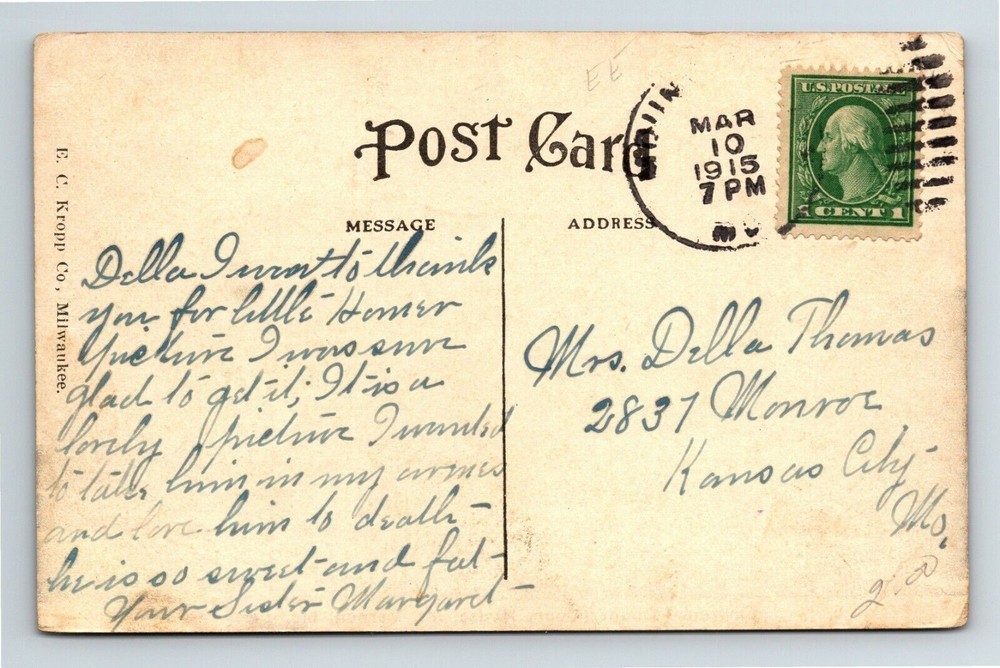 EE
Post Card
MAR
10
1915
7 PM
MO
U.S. POSTAGE
1 CENT 1
E. C. Kropp Co., Milwaukee.
MESSAGE
ADDRESS
Della I want to thank
you for little Homer
picture I was sure
glad to get it; It is a
lovely picture I wanted
to take him in my armes
and love him to death
he is so sweet and fat
Your Sister Margaret
Mrs. Della Thomas
2837 Monroe
Kansas City
Mo.
2.00